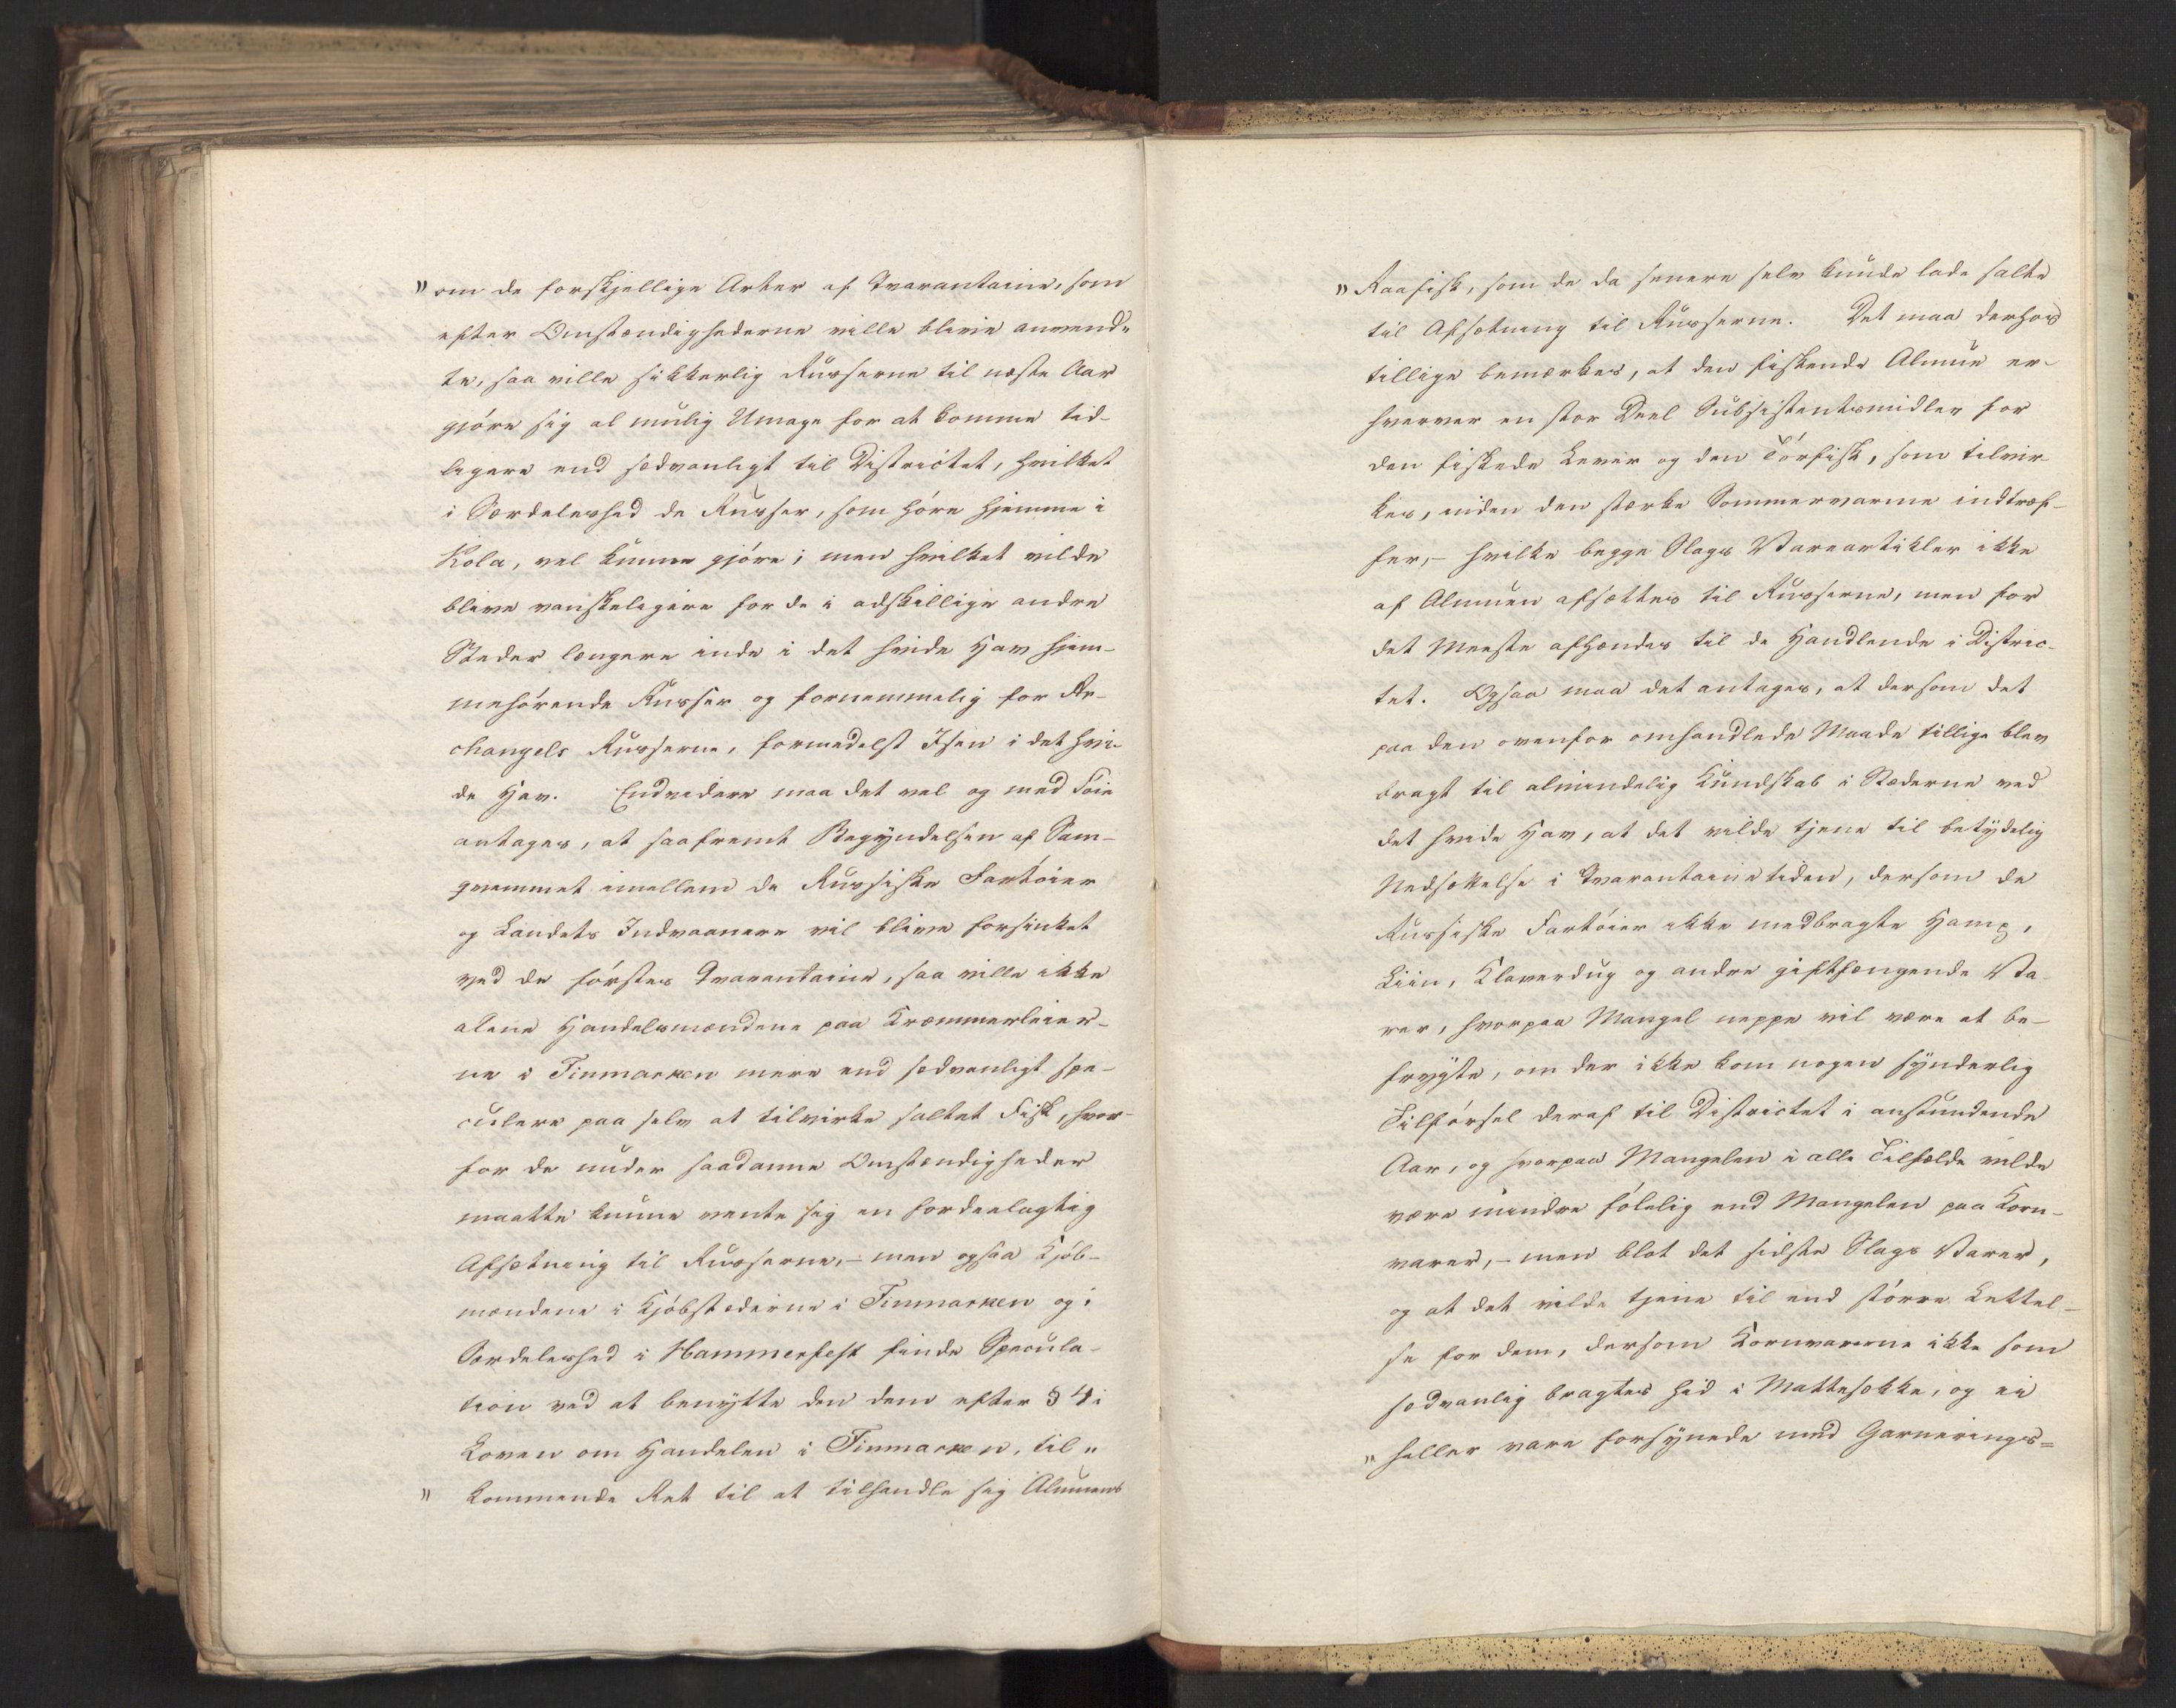 "om de forskjellige Arter af Qvarantaine, som
efter Omstændighederne ville blive anvend"
te, saa ville sikkerlig Russerne til næste Aar
gjøre sig al mulig Umage for at komme tid-
ligere end sædvanligt til Districtet, hvilket
i Særdeleshed de Russer, som høre hjemme i
Kola, vel kunne gjøre; men hvilket vilde
blive vanskeligere for de i adskillige andre
Steder længere inde i det hvide Hav hjem-
mehørende Russer og fornemmelig for Ar-
changels Russerne, formedelst Isen i det hvi-
de Hav. Endvidere maa det vel og med Føie
antages, at saafremt Begyndelsen af Sam-
qvemmet imellem de Russiske Fartøier
og Landets Indvaanere vil blive forsinket
ved de førstes Qvarantaine, saa ville ikke
alene Handelsmændene paa Kræmmerleier-
ne i Finmarken mere end sædvanligt spe-
culere paa selv at tilvirke saltet Fisk, hvor-
for de under saadanne Omstændigheder
maatte kunne vente sig en fordeelagtig
Afsætning til Russerne, - men ogsaa Kjøb-
mændene i Kjøbstæderne i Finmarken og i
Særdeleshed i Hammerfest finde Specula-
tion ved at benytte den dem efter § 4 i
Loven om Handelen i Finmarken, til"
" kommende Ret til at tilhandle sig Almuens
" Raafisk, som de da senere selv kunde lade salte
til Afsætning til Russerne. Det maa derhos
tillige bemærkes, at den fiskende Almue er-
hverver en stor Deel Subsistentsmidler for
den fiskede Lever og den Tørfisk, som tilvir-
kes, inden den stærke Sommervarme indtræf-
fer, - hvilke begge Slags Vareartikler ikke
af Almuen afsættes til Russerne, men for
det Meeste afhændes til de Handlende i Distric-
tet. Ogsaa maa det antages, at dersom det
paa den ovenfor omhandlede Maade tillige blev
bragt til almindelig Kundskab i Stæderne ved
det hvide Hav, at det vilde tjene til betydelig
Nedsættelse i Qvarantainetiden, dersom de
Russiske Fartøier ikke medbragte Hamp,
Liin, Klaverdug og andre giftfængende Va
rer, hvorpaa Mangel neppe vil være at be-
frygte, om der ikke kom nogen synderlig
Tilførsel deraf til Districtet i anstundende
Aar, og hvorpaa Mangelen i alle Tilfælde vilde
være mindre følelig end Mangelen paa Korn-
varer, - men blot det sidste Slags Varer,
og at det vilde tjene til end større Lettel-
se for dem, dersom Kornvarerne ikke som
sædvanlig bragtes hid i Mattesække, og ei
" heller vare forsynede med Garnerings=